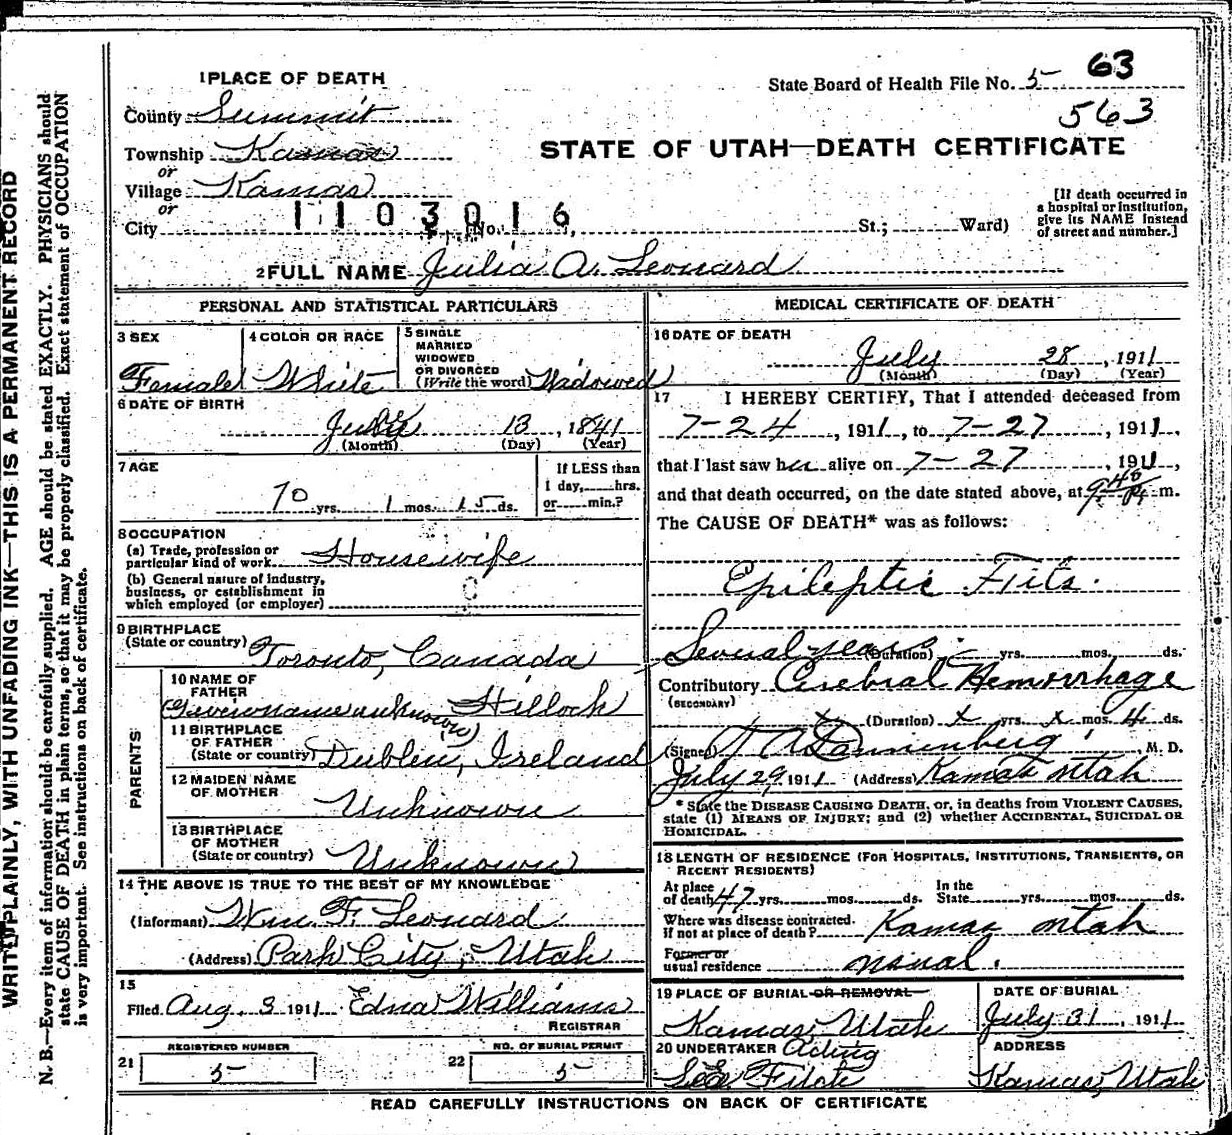 WRITE PLAINLY, WITH UNFADING INK—THIS IS A PERMANENT RECORD
N. B.—Every item of information should be carefully supplied. AGE should be stated EXACTLY. PHYSICIANS should
state CAUSE OF DEATH in plain terms, so that it may be properly classified. Exact statement of OCCUPATION
is very important. See instructions on back of certificate.
1 PLACE OF DEATH
State Board of Health File No. 5 63
563
County Summit
Township Kamas
or
Village Kamas
or
City No. St.; Ward)
1103016
STATE OF UTAH—DEATH CERTIFICATE
[If death occurred in
a hospital or institution,
give its NAME instead
of street and number.]
2 FULL NAME Julia A. Leonard
PERSONAL AND STATISTICAL PARTICULARS
3 SEX
Female
4 COLOR OR RACE
White
5 SINGLE
MARRIED
WIDOWED
OR DIVORCED
(Write the word) Widowed
6 DATE OF BIRTH
13, 1841
(Month) (Day) (Year)
7 AGE
70 yrs. 1 mos. 15 ds.
If LESS than
1 day, hrs.
or min.?
8 OCCUPATION
(a) Trade, profession or
particular kind of work Housewife
(b) General nature of industry,
business, or establishment in
which employed (or employer)
9 BIRTHPLACE
(State or country) Toronto, Canada
PARENTS
10 NAME OF
FATHER
(Given name unknown) Hillock
11 BIRTHPLACE
OF FATHER
(State or country) Dublin, Ireland
12 MAIDEN NAME
OF MOTHER
Unknown
13 BIRTHPLACE
OF MOTHER
(State or country) Unknown
14 THE ABOVE IS TRUE TO THE BEST OF MY KNOWLEDGE
(Informant) Wm. F. Leonard
(Address) Park City, Utah
15
Filed Aug. 3 1911 Edna Williams
REGISTRAR
REGISTERED NUMBER
21 5
NO. OF BURIAL PERMIT
22 5
MEDICAL CERTIFICATE OF DEATH
16 DATE OF DEATH
July 28, 1911
(Month) (Day) (Year)
17 I HEREBY CERTIFY, That I attended deceased from
7-24, 1911, to 7-27, 1911,
that I last saw her alive on 7-27, 1911,
and that death occurred, on the date stated above, at m.
The CAUSE OF DEATH* was as follows:
Epileptic Fits.
Several years (Duration) yrs. mos. ds.
Contributory Cerebral Hemorrhage
(SECONDARY)
x (Duration) x yrs. x mos. 4 ds.
(Signed) Dannenberg, M. D.
July 29, 1911 (Address) Kamas Utah
* State the DISEASE CAUSING DEATH, or, in deaths from VIOLENT CAUSES,
state (1) MEANS OF INJURY; and (2) whether ACCIDENTAL, SUICIDAL OR
HOMICIDAL.
18 LENGTH OF RESIDENCE (FOR HOSPITALS, INSTITUTIONS, TRANSIENTS, OR
RECENT RESIDENTS)
At place
of death 47 yrs. mos. ds.
In the
State yrs. mos. ds.
Where was disease contracted.
If not at place of death? Kamas Utah
Former or
usual residence usual.
19 PLACE OF BURIAL OR REMOVAL
Kamas, Utah
DATE OF BURIAL
July 31, 1911
20 UNDERTAKER Acting
ADDRESS
Kamas, Utah
READ CAREFULLY INSTRUCTIONS ON BACK OF CERTIFICATE